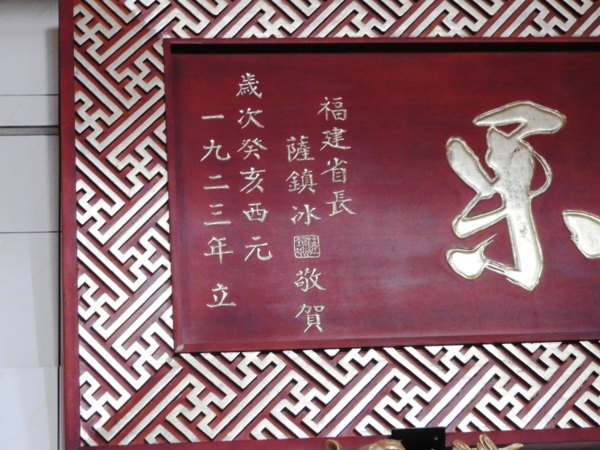 乐
福建省長
薩鎮冰 敬賀
歲次癸亥西元
一九二三年 立